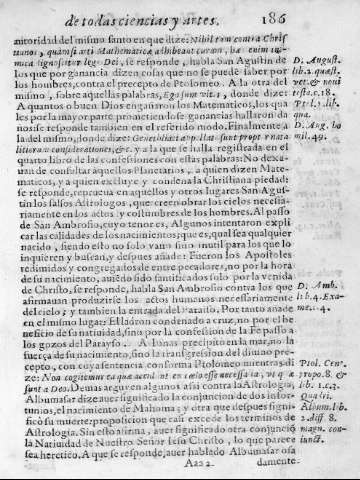 de todas ciencias y artes. 186
autoridad del mismo santo en que dize: Nihil tam contra Chris
tianos, quam si arti Mathematicæ adhibeant curam, hæc enim ini-
mica dignoscitur legi Dei, se responde, habla San Augustin de
los que por ganancia dizen cosas que no se puede saber por
los hombres, contra el precepto de Ptolomeo. A la otra del
mismo, sobre aquellas palabras, Ego sum vitis, donde dize:
A quantos o buen Dios engañaron los Matematicos, los qua
les por la mayor parte prometiendose ganancias hallaron da
ños: se responde tambien en el referido modo. Finalmente a
la del mismo, donde dize:
libera considerationes, &c. y a la que se halla registrada en el
quarto libro de las confessiones con estas palabras: No dexa-
uan de consultar aquellos Planetarios, a quien dizen Mate-
maticos, y a quien excluye y condena la Christiana piedad:
se responde, reprueua en aquellos y otros lugares San Agus-
tin los falsos Astrologos, que creen obrar los cielos necessa-
riamente en los actos y costumbres de los hombres. Al passo
de San Ambrosio, cuyo tenor es, Algunos intentaron expli
car las calidades de los nacimientos; que es, qual sea qualquier
nacido, siendo esto no solo vano sino inutil para los que lo
inquieren y buscan, y despues añade: Fueron los Apostoles
redimidos y congregados de entre pecadores, no por la hora
de su nacimiento, auiedo sido santificados solo por la venida
de Christo, se responde, habla San Ambrosio contra los que
afirmauan produzirse los actos humanos necessariamente
del cielo; y tambien la entrada del Paraiso. Por tanto añade
en el mismo lugar: El ladron condenado a cruz, no por el be
neficio de su natiuidad, sino por la confession de la Fe passo a
los gozos del Parayso. A Ionas precipito en la mar, no la
fuerça de su nacimiento, sino la transgression del diuino pre-
cepto, con cuya sentencia conforma Ptolomeo mientras di
ze: Non cogitemus ea quæ accidunt ex cælo esse necessaria, ut quæ
sunt a Deo. Demas arguyen algunos assi contra la Astrologia,
Albumasar dize auer significado la conjuncion de dos infor-
tunios, el nacimento de Mahoma; y otra que despues signifi-
cò su muerte: proposicion que casi excede los terminos de
Astrologia. Sin esto afirma, auer significado otra conjunciõ
la Natiuidad de Nuestro Señor Iesu Christo, lo que parece
sea heretico. A que se responde, auer hablado Albumasar osa
Aaa 2. damente.
D. August.
lib. 2. quæst.
vet. & noui
testa. c. 18.
D. Aug. ho
mil. 49.
D. Amb.
lib. 4. Exa-
me. c. 4.
Ptol. Cen-
propo. 8. &
lib. 1. c. 3.
Quatri.
Album. lib.
2. diff. 8.
magn. con-
iunct.